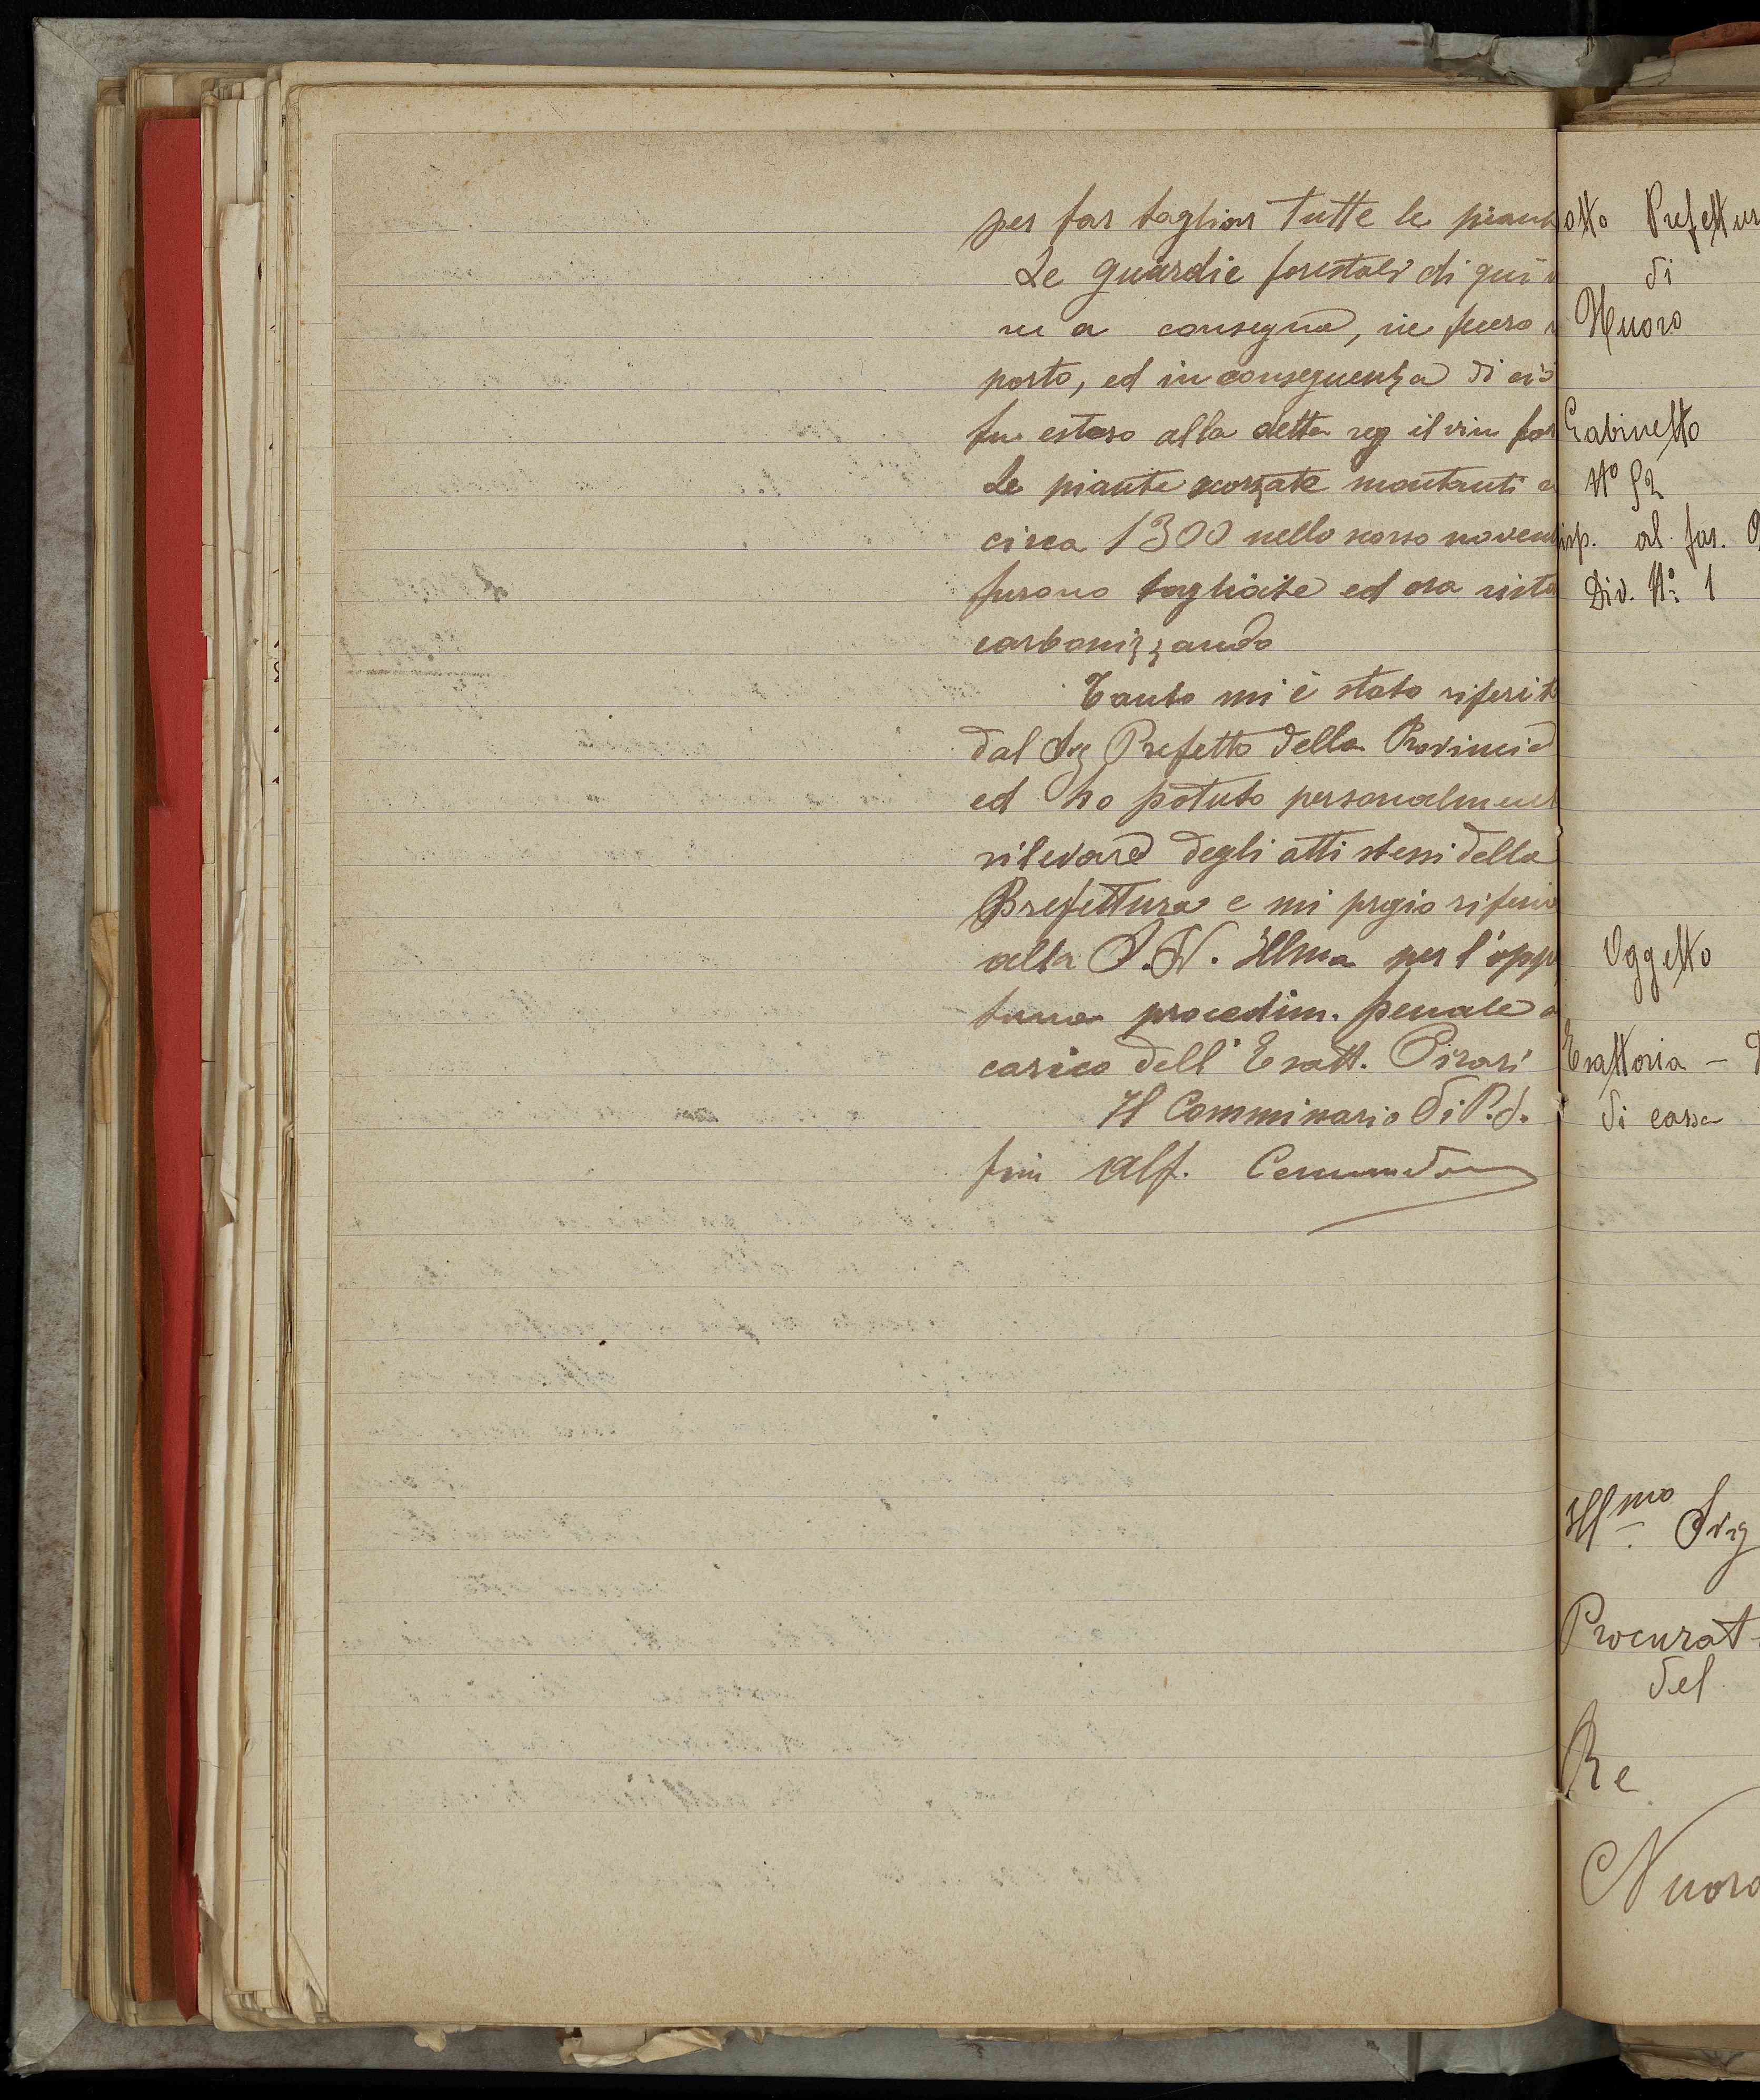 per far tagliar tutte le piant
Le guardie forestali di qui
in a consegna, ne fecero
porto, ed in conseguenza di ciò
fu esteso alla detta reg il vin for
Le piante scorzate montanti a
circa 1300 nello scorso novem
furono tagliate ed ora
carbonizzando
Tanto mi è stato riferit
dal Sig Prefetto della Provincia
ed ho potuto personalment
rilevare degli atti stessi della
Prefettura e mi prgio riferir
alla S.V. Illma per l'opp
tuno procedim. penale a
carico dell'Esatt. Pirari
Il Commissario di P.S.
fir Alf.
otto Prefettur
di
Nuoro
Gabinetto
Nº 52
isp. al fog.
Div. Nº 1
Oggetto
Esattoria -
di cassa
Illmo Sig
Procurat
del
Re
Nuoro